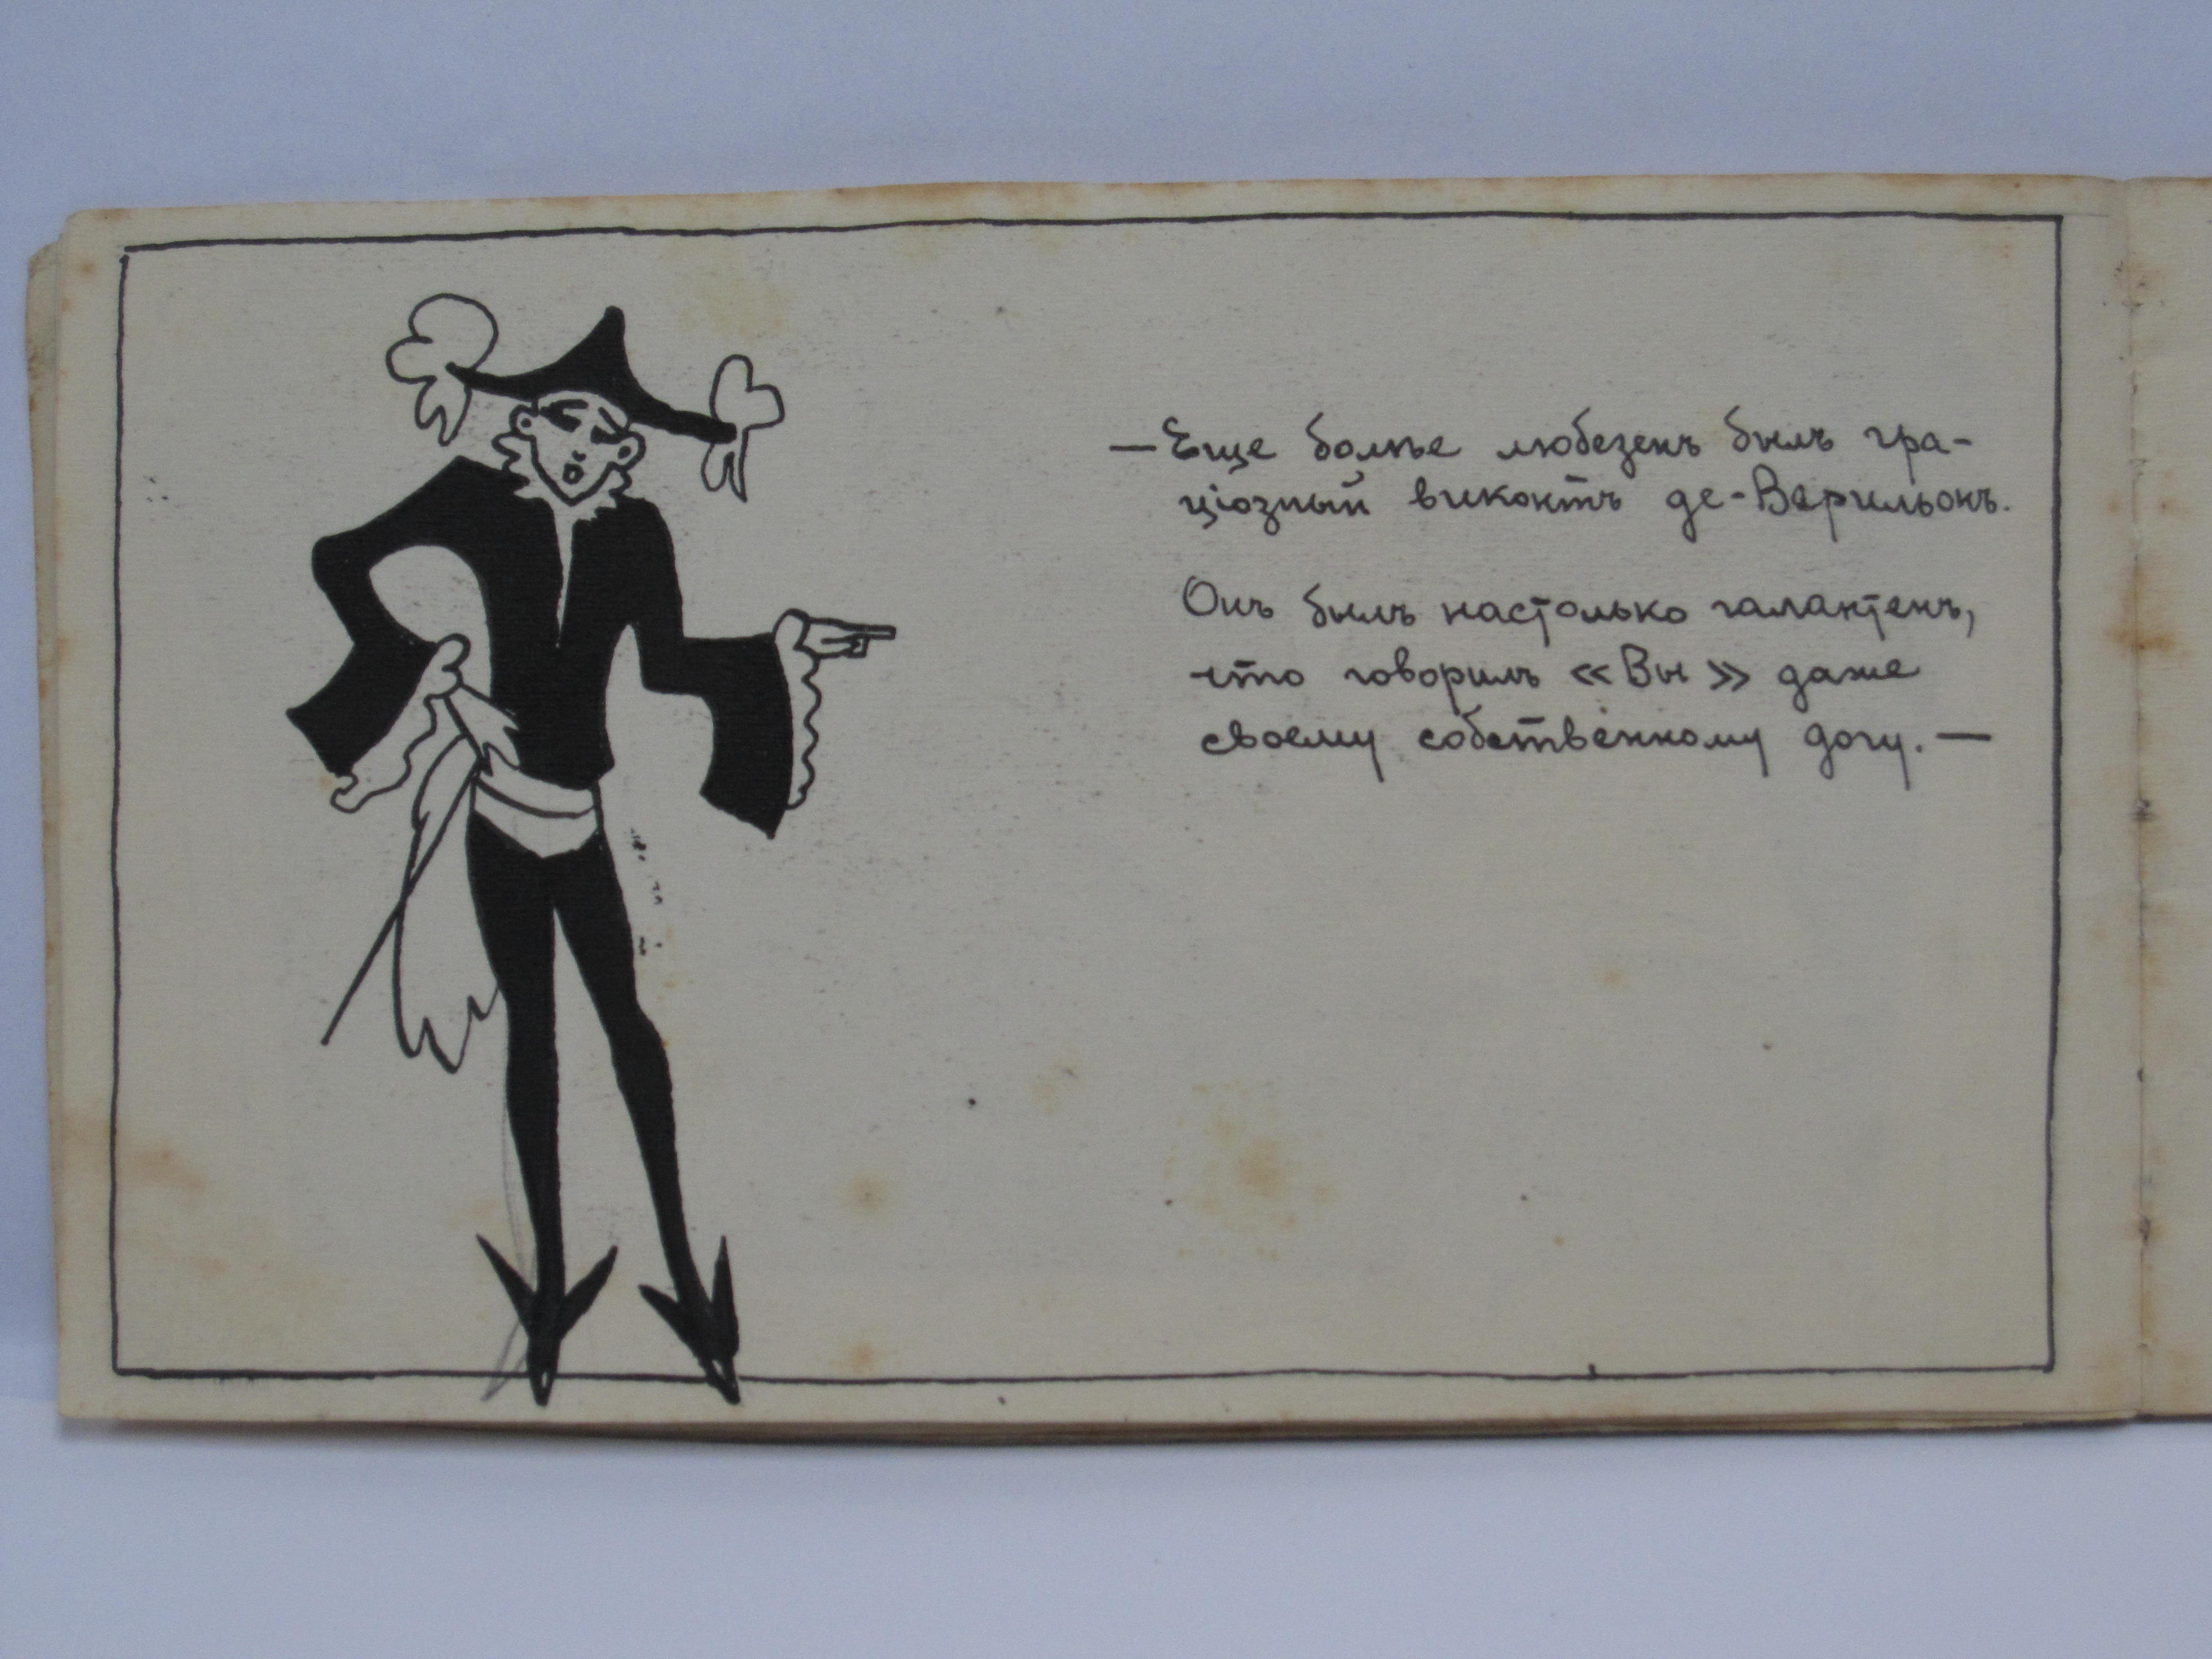 — Еще болѣе любезенъ былъ гра-
ціозный виконтъ де-Верильонъ.
Онъ былъ настолько галантенъ,
что говорилъ «Вы» даже
своему собственному догу. —